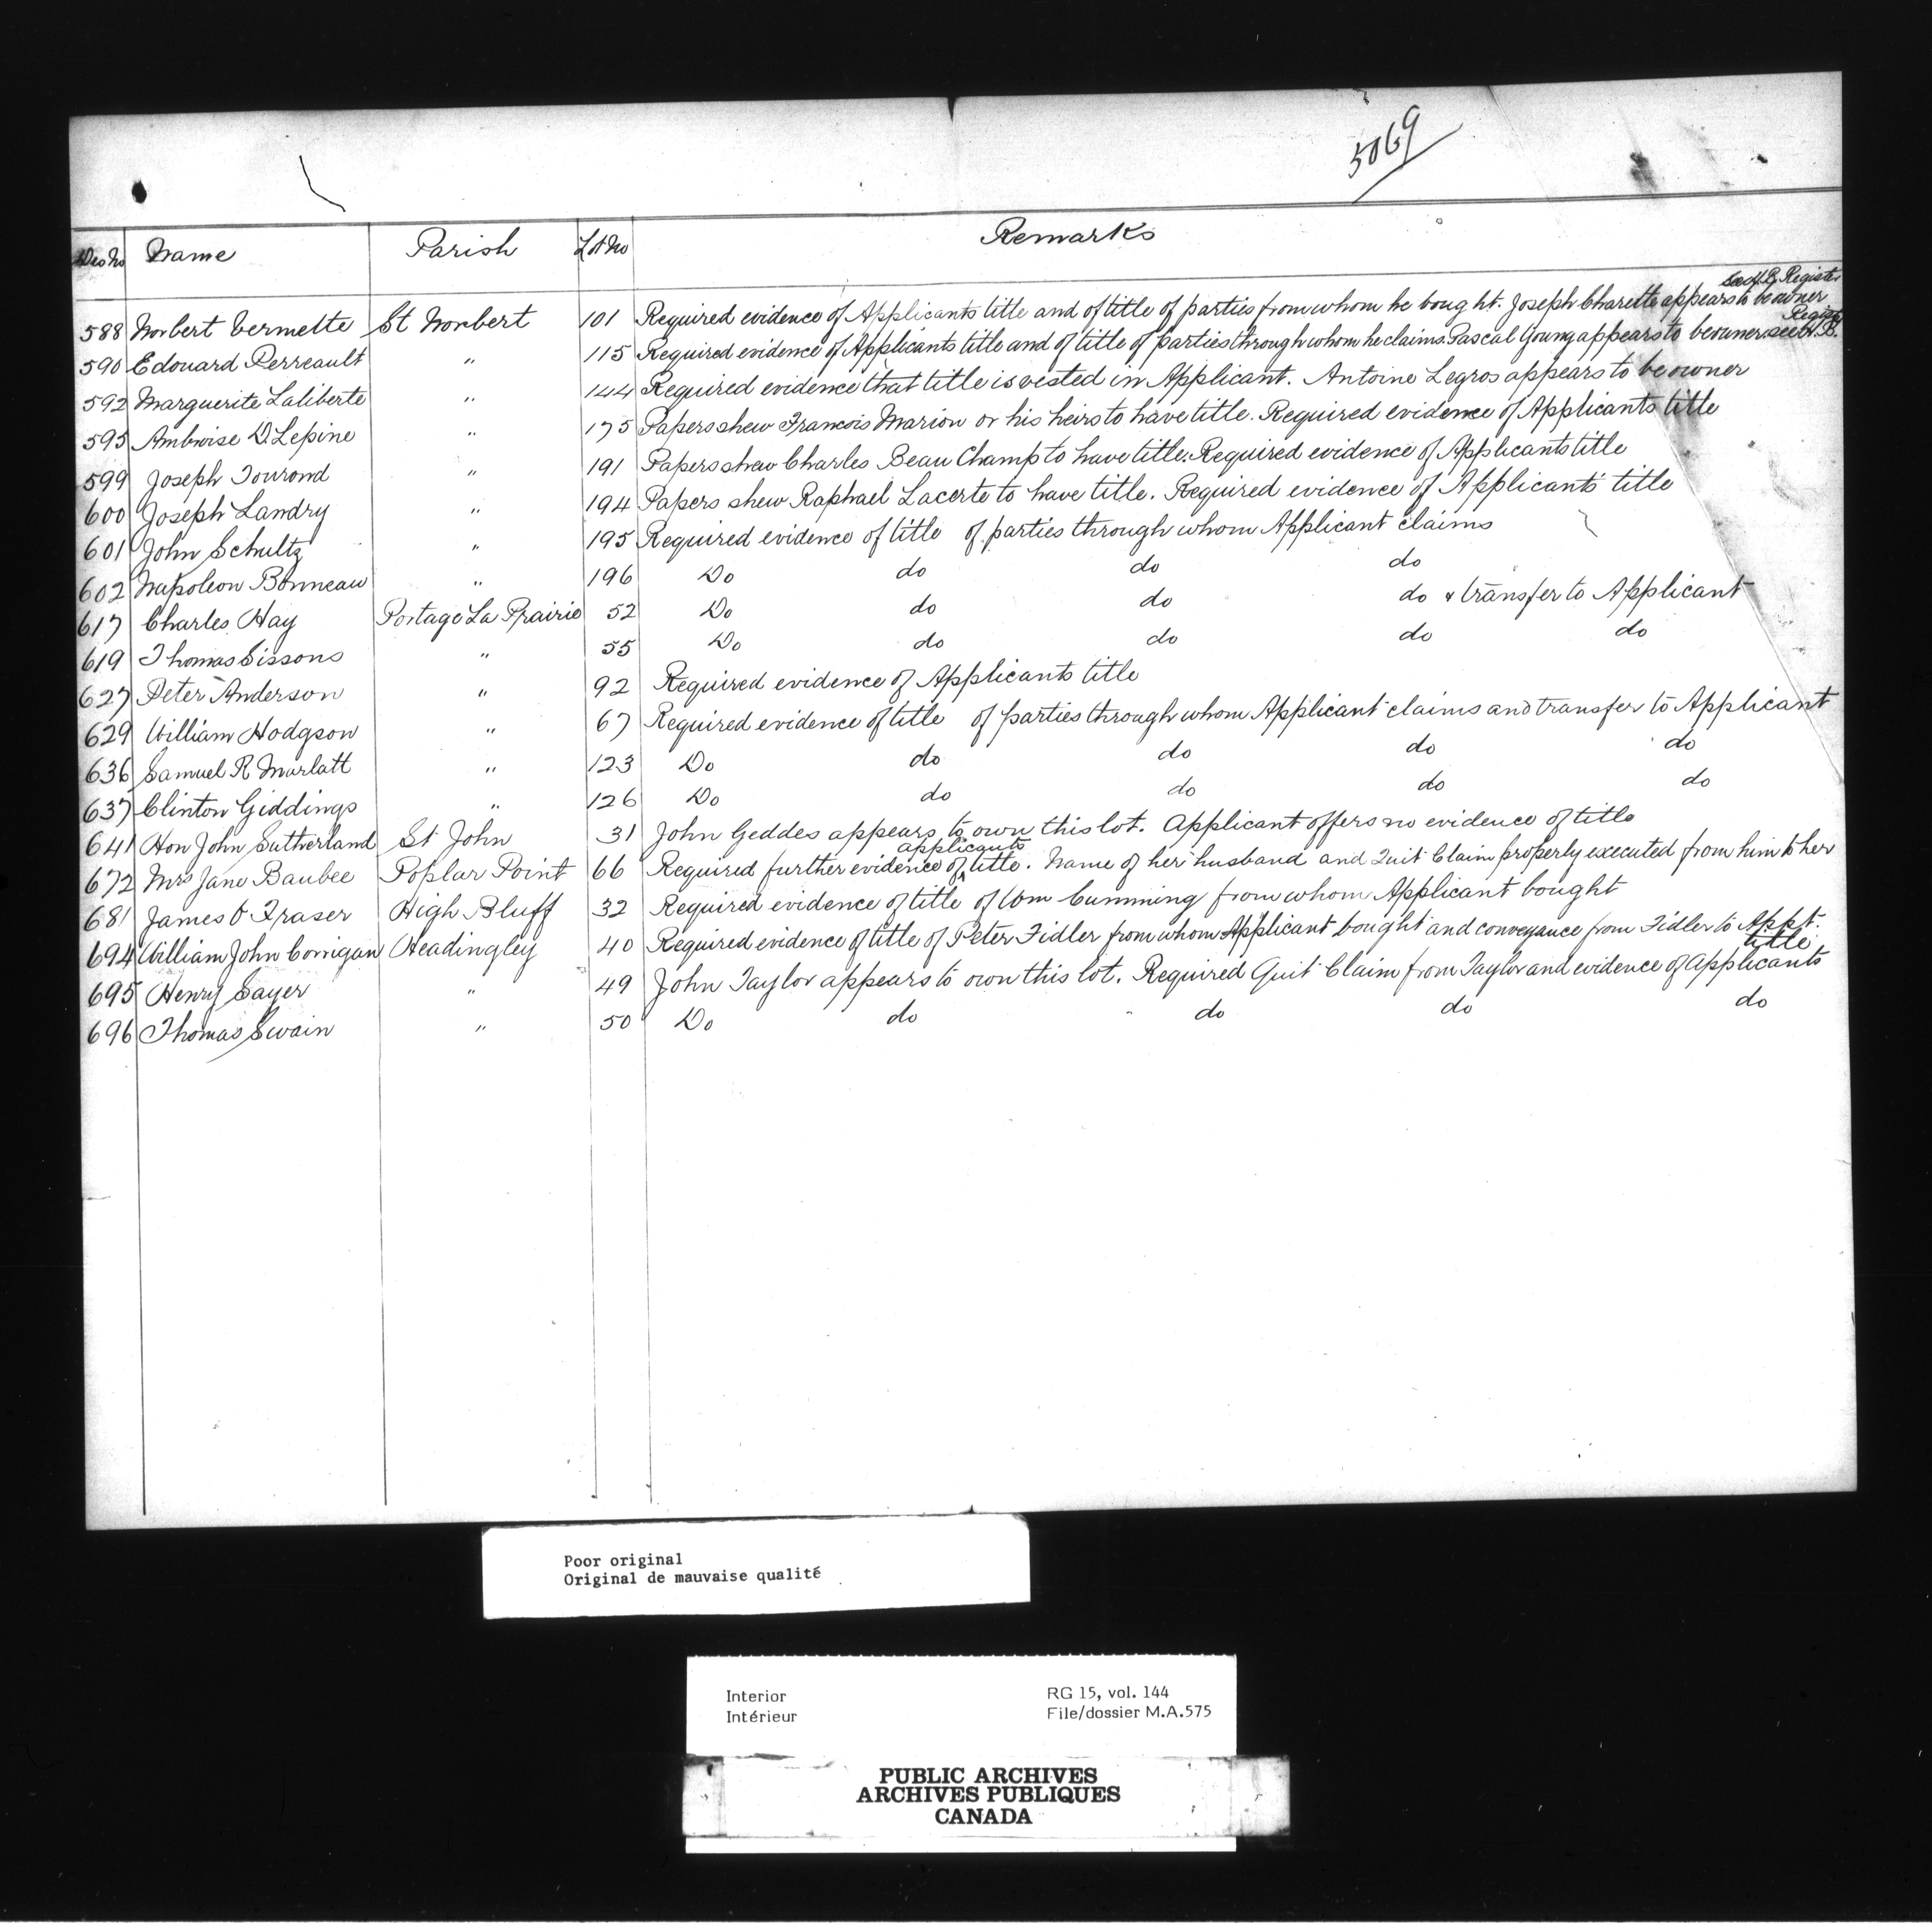 5069
Des No Name Parish Lot No Remarks
588 Norbert Vermette St Norbert 101 Required evidence of Applicants title and of title of parties from whom he bought. Joseph Charette appears to be owner see H.B. Register
590 Edouard Perreault " 115 Required evidence of Applicants title and of title of parties through whom he claims. Pascal Young appears to be owner. see H.B. Register
592 Marguerite Laliberte " 144 Required evidence that title is vested in Applicant. Antoine Legros appears to be owner
595 Ambroise D. Lepine " 175 Papers shew Francois Marion or his heirs to have title. Required evidence of Applicants title
599 Joseph Tourond " 191 Papers shew Charles Beau Champ to have title. Required evidence of Applicants title
600 Joseph Landry " 194 Papers shew Raphael Lacerte to have title. Required evidence of Applicants title
601 John Schultz " 195 Required evidence of title of parties through whom Applicant claims
602 Napoleon Bonneau " 196 Do do do do
617 Charles Hay Portage La Prairie 52 Do do do do & transfer to Applicant
619 Thomas Sissons " 55 Do do do do do
627 Peter Anderson " 92 Required evidence of Applicants title
629 William Hodgson " 67 Required evidence of title of parties through whom Applicant claims and transfer to Applicant
636 Samuel R Marlatt " 123 Do do do do do
637 Clinton Giddings " 126 Do do do do do
641 Hon John Sutherland St John 31 John Geddes appears to own this lot. Applicant offers no evidence of title
672 Mrs Jane Baubee Poplar Point 66 Required further evidence of applicants title. Name of her husband and Quit Claim properly executed from him to her
681 James O Fraser High Bluff 32 Required evidence of title of Wm Cumming from whom Applicant bought
694 William John Corrigan Headingley 40 Required evidence of title of Peter Fidler from whom Applicant bought and conveyance from Fidler to Appt.
695 Henry Sayer " 49 John Taylor appears to own this lot. Required Quit Claim from Taylor and evidence of Applicants title
696 Thomas Swain " 50 Do do do do do
Poor original
Original de mauvaise qualité
Interior RG 15, vol. 144
Intérieur File/dossier M.A.575
PUBLIC ARCHIVES
ARCHIVES PUBLIQUES
CANADA